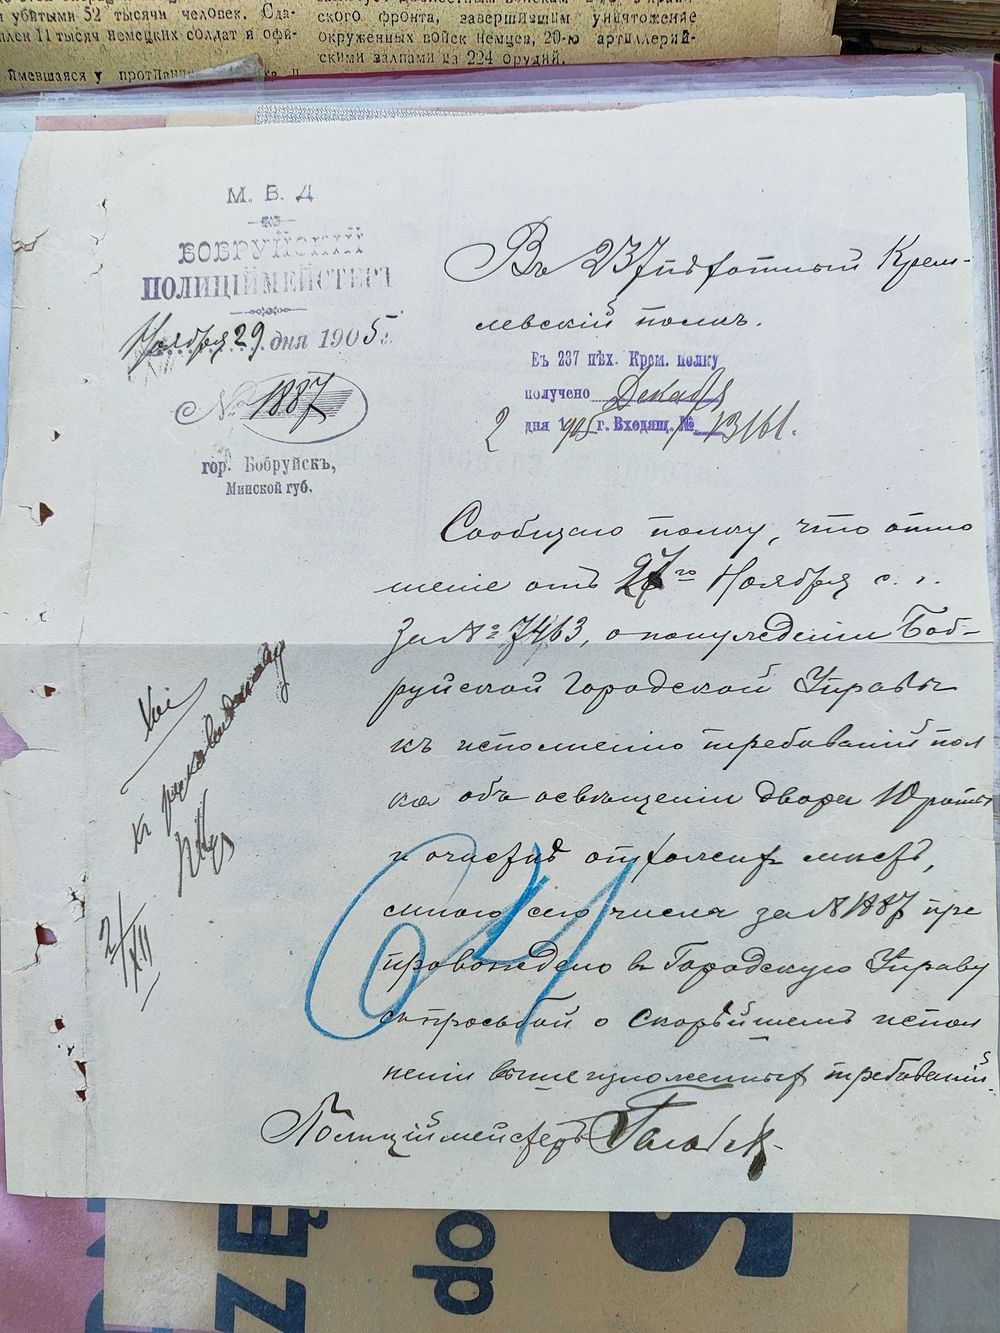 убитыми 52 тысячи человек. Сда-
плен 11 тысяч немецких солдат и офи-
ского фронта, завершившим уничтожение
окружённых войск немцев, 20-ю артиллерий-
скими залпами из 224 орудий.
имевшаяся у
М. В. Д
БОБРУЙСКІЙ
ПОЛИЦІЙМЕЙСТЕРЪ
Ноября 29 дня 1905 г.
№ 1887
гор. Бобруйскъ,
Минской губ.
Въ 237 пѣхотный Крем-
левскій полкъ.
Въ 237 пѣх. Крем. полку
получено Декабря
2 дня 1905 г. Входящ. № 13161.
Сообщаю полку, что отно
шеніе отъ 27го Ноября с. г.
за № 7463, о понужденіи Боб-
руйской Городской Управы
къ исполненію требованій пол
ка объ освѣщеніи двора 10 роты
и очисткѣ отхожихъ мѣстъ,
мною сего числа за № 1887 пре
провождено въ Городскую Управу
съ просьбой о скорѣйшемъ испол
неніи вышеизложенныхъ требованій.
Полиціймейстеръ
къ руководству
2/XII